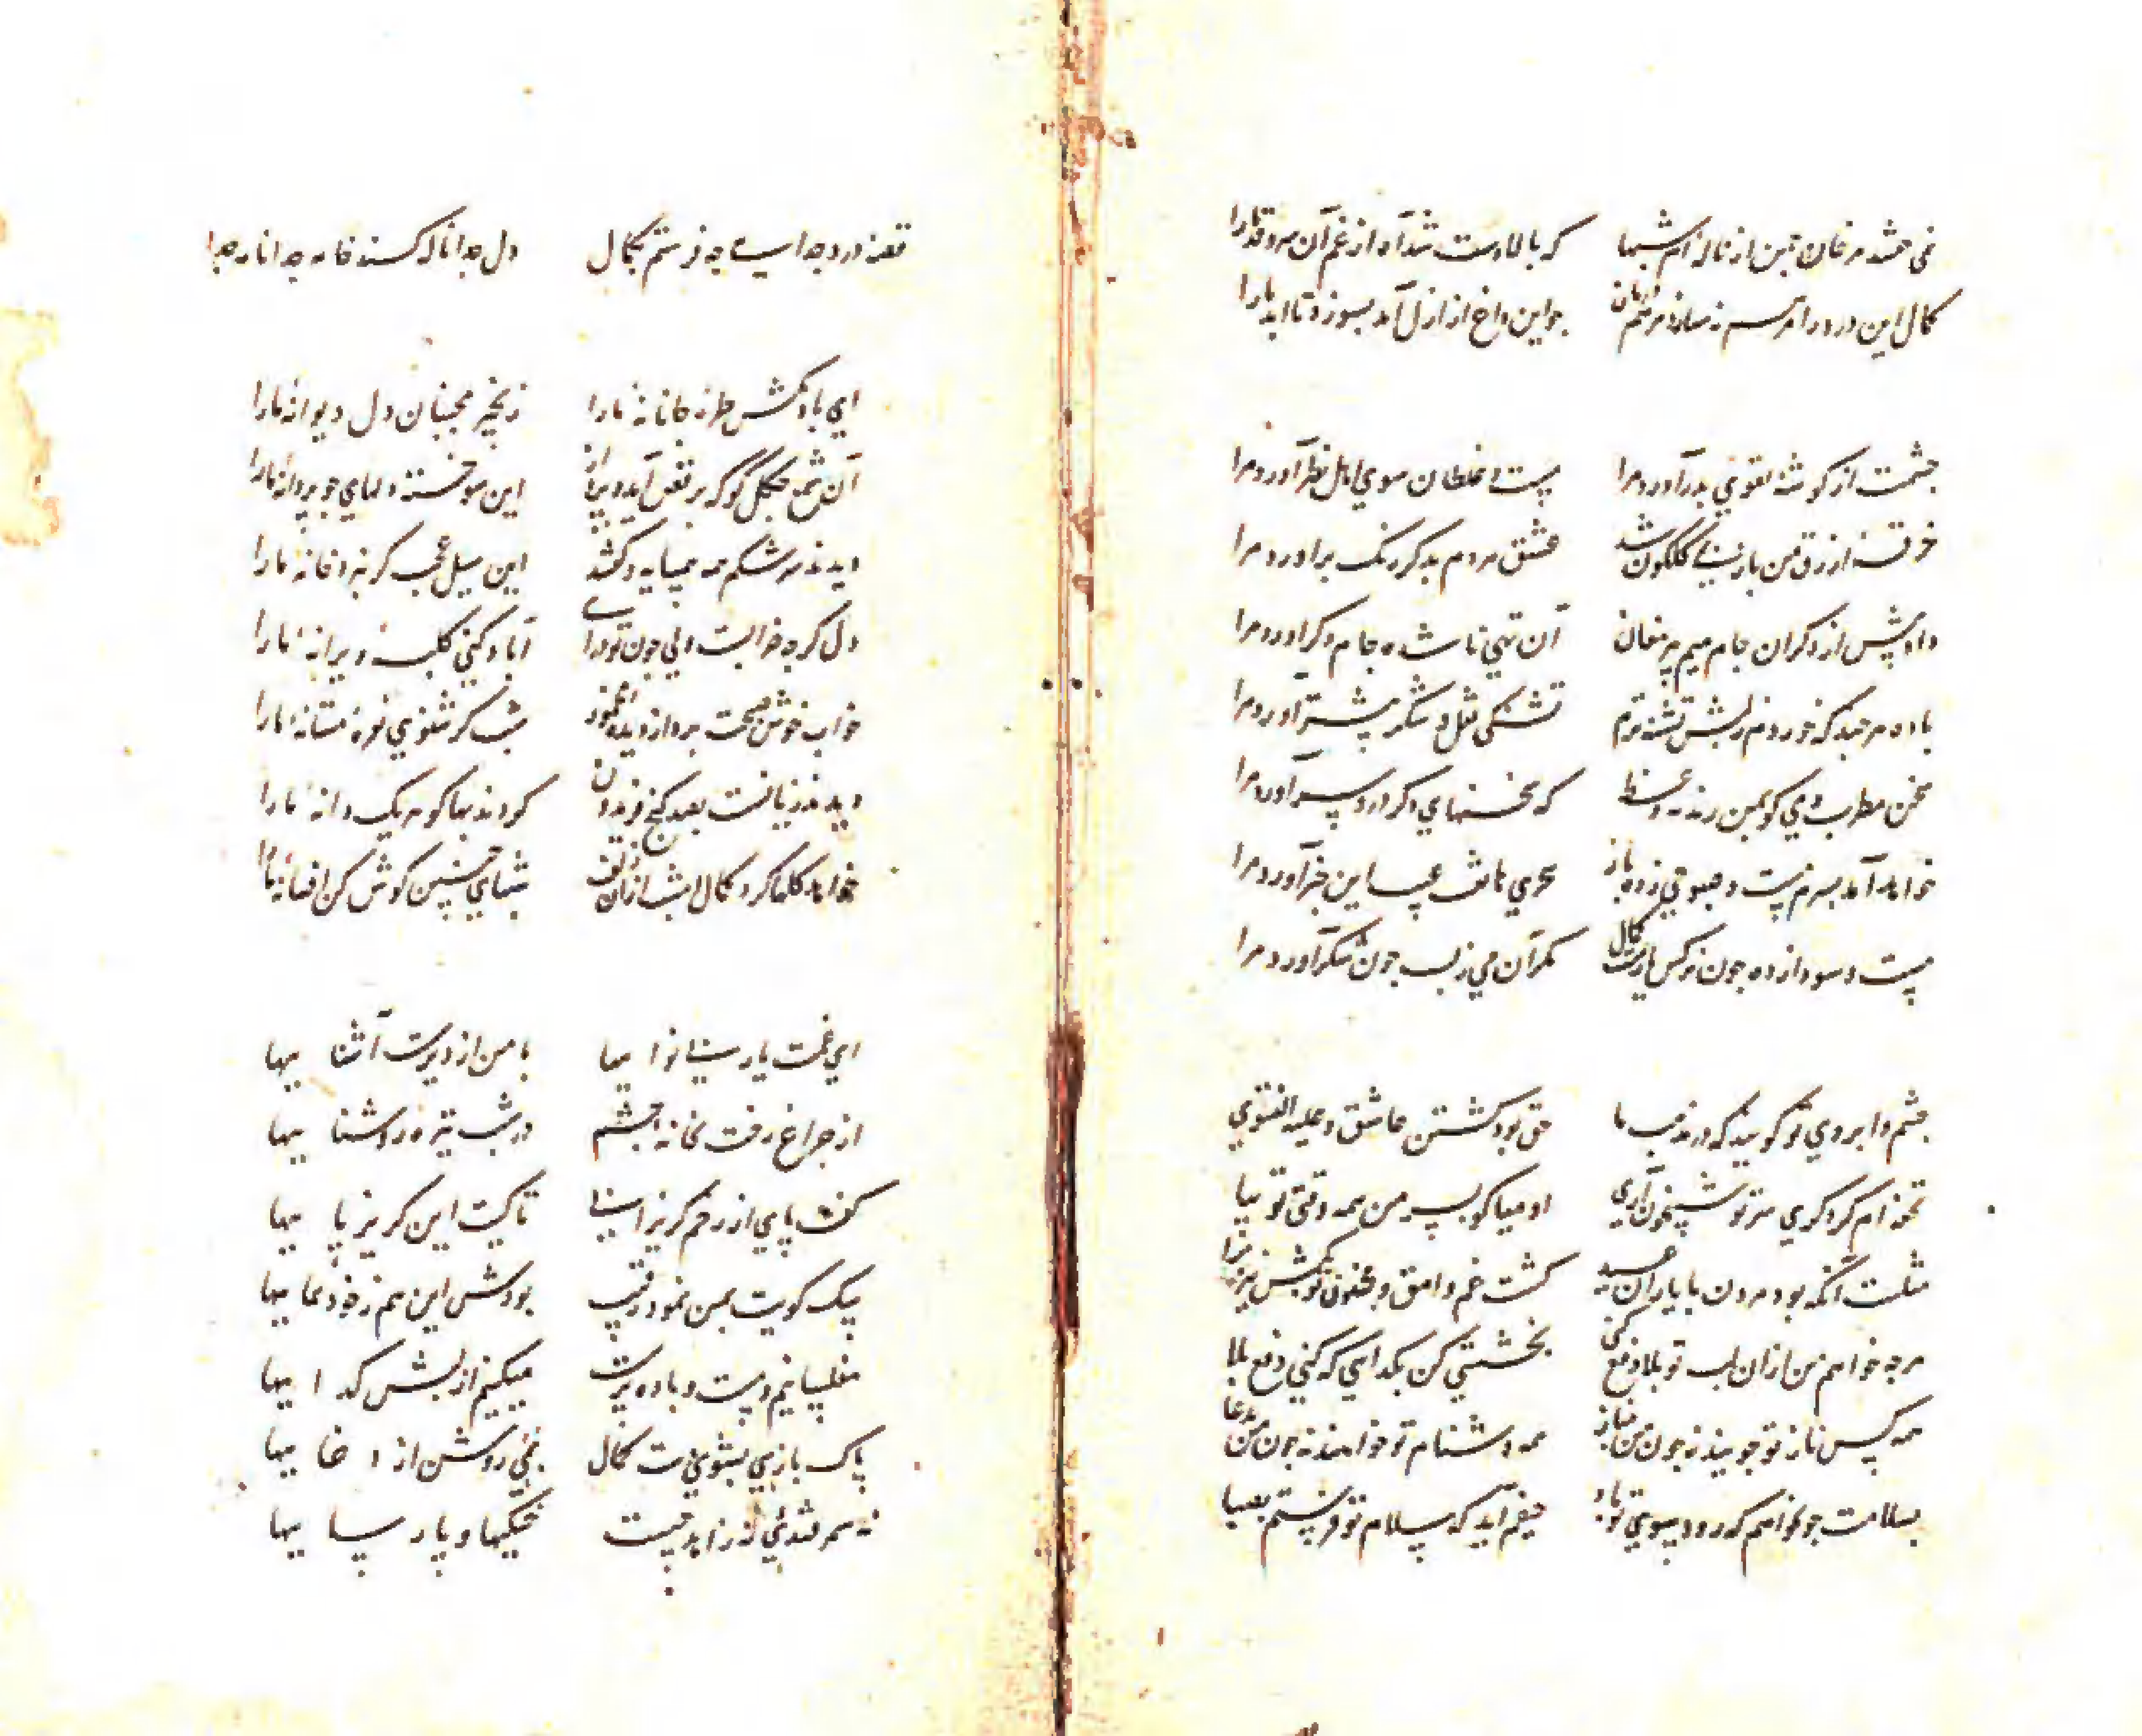 نمی خسبند مرغان چمن از ناله ام شبها که بالا دست شد آه از غم آن سرو قد ما را
کمال این درد را مرهم نسازد مرهم چو این داغ از ازل آمد بسوزد تا ابد ما را
چشمت از گوشه تقوی بدر آورد مرا مست و غلطان سوی اهل نظر آورد مرا
خرقه ازرق من باز بمی گلگون شد عشق هر دم بدگر رنگ برآورد مرا
داد پیش از دگران جام میم پیر مغان آن تهی ناشده جام دگر آورد مرا
باده هر چند که خوردم ز لبش تشنه ترم تشنگی نقل و شکر بیشتر آورد مرا
سخن مطرب و می گو بمن رند نه وعظ که سخنهای دگر درد سر آورد مرا
خواهد آمد بسرم مست و صبوحی زده باز سحری هاتف غیب این خبر آورد مرا
مست و سودازده چون نرگس یارست کمال مگر آن می ز لب چون شکر آورد مرا
چشم و ابروی تو گویند که در مذهب ما حق بود کشتن عاشق و علیه الفتوی
تحفه ام گرد کوی سر تو آری او میا گو بسر من همه وقتی تو بیا
مثلست آنکه بود مردن با یاران عید کشت غم وامق و مجنون تو بکش نیز مرا
هرچه خواهم من از آن لب تو بلا دفع کنی بخششی کن بگدایی که کنی دفع بلا
همه کس ناز تو جویند نه چون من بنیاز همه دشنام تو خواهند نه چون من بدعا
بسلامت چو نخواهم که رود سوی تو باد حیفم آید که سلام تو فرستم بصبا
قصه درد جدایی چه فرستم بکمال دل جدا ناله کند خامه جدا نامه جدا
ای باد مکش طره جانانه ما را زنجیر مجنبان دل دیوانه ما را
آن شمع چگل گو که برقص آید و پرواز این سوخته دلهای چو پروانه ما را
دیدند سرشکم همه همسایه و گفتند این سیل عجب گر نبرد خانه ما را
دل گرچه خرابست ولی چون تو درآیی آباد کنی کلبه ویرانه ما را
خواب خوش صبحت برد از دیده مخمور شب گر شنوی نعره مستانه ما را
دیدند زیانست بصد گنج فریدون کردند بها گوهر یک دانه ما را
خواهد گلها کرد کمال امشب از آن زلف شبهای چنین گوش کن افسانه ما را
ای غمت یار بینوایی ها با من از دیرت آشنایی ها
از چراغ رخت بخانه چشم در شب تیره روشنایی ها
کف پای از رخم گریزانست تا کیت این گریز پایی ها
سگ کویت بمن نمود رقیب بودش این هم ز خودنمایی ها
مفلسانیم و مست و باده پرست میکنیم از لبش گدایی ها
پاک بازی بشوی دست کمال یعنی روشن از دغایی ها
نه سمرقندئی نه زاهد چیست خشکیها و پارسایی ها